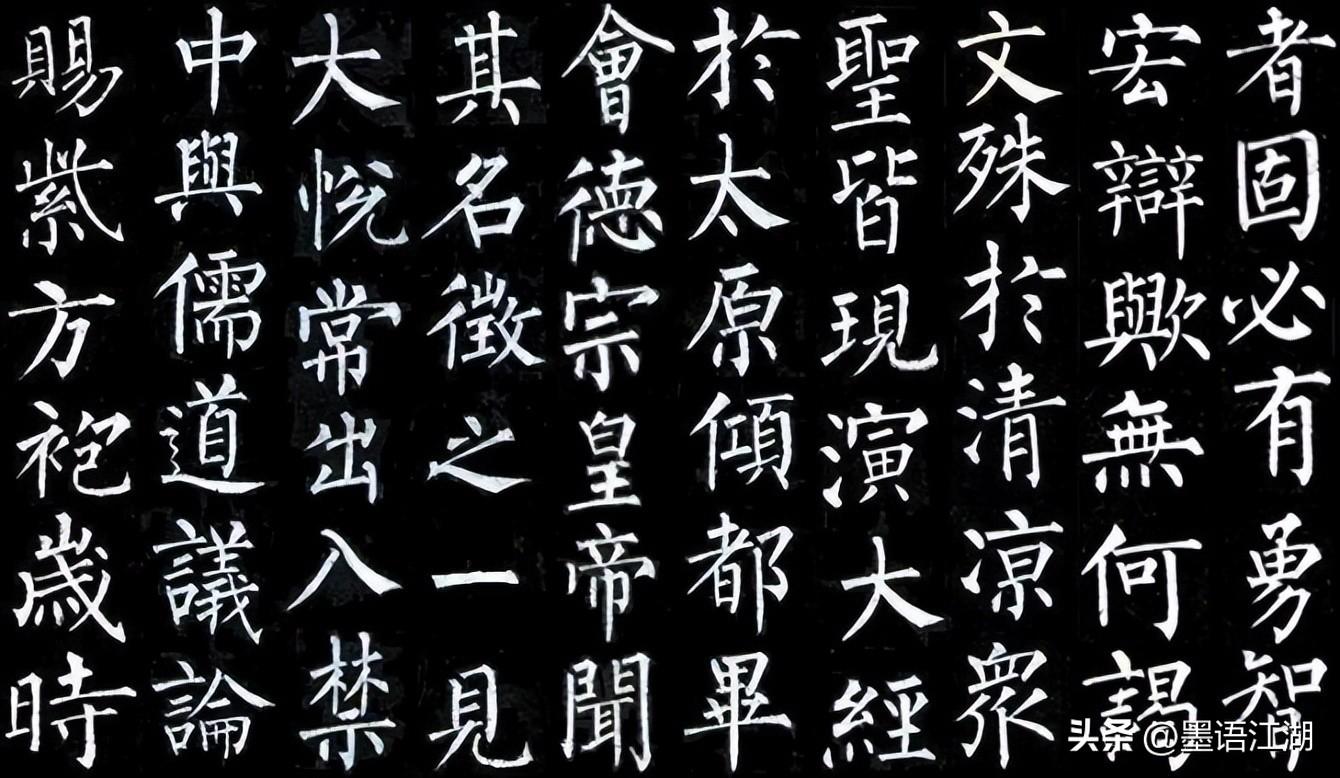 者固必有勇智
宏辯歟無何謁
文殊於清涼衆
聖皆現演大經
於太原傾都畢
會德宗皇帝聞
其名徵之一見
大悅常出入禁
中與儒道議論
賜紫方袍歲時
头条 @墨语江湖